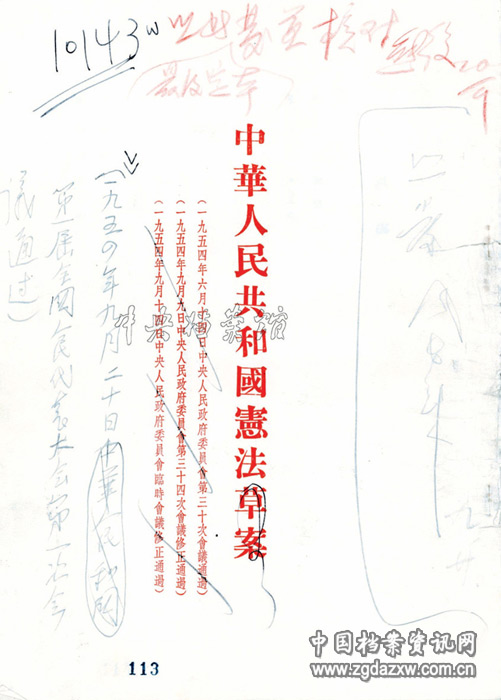 10143
以此為至核対
最後定本
中華人民共和國憲法草案
(一九五四年六月十四日中央人民政府委員會第三十次會議通過)
(一九五四年九月九日中央人民政府委員會第三十四次會議修正通過)
(一九五四年九月十四日中央人民政府委員會臨時會議修正通過)
(一九五四年九月二十日中華人民共和國
第一屆全國人民代表大会第一次会
議通过)
中央档案馆
113
中国档案资讯网
www.zgdazxw.com.cn